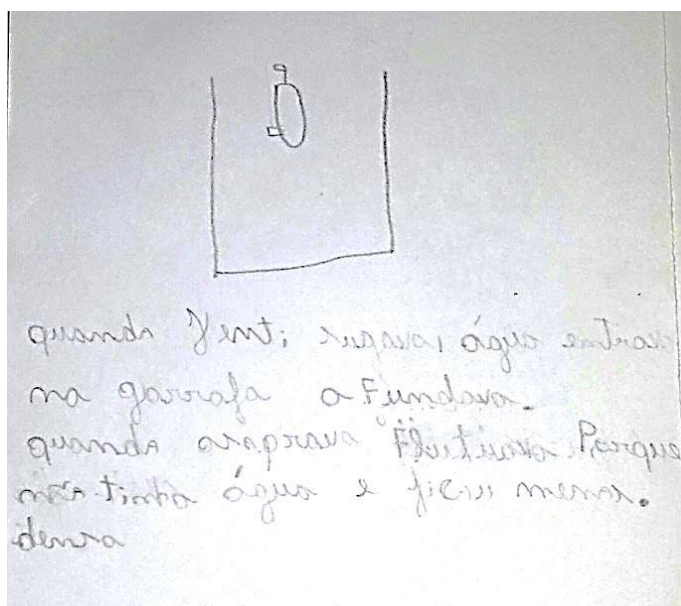 quando água entrava
na garrafa afundava.
quando Flutuava Porque
não tinha água e ficou menos.
densa